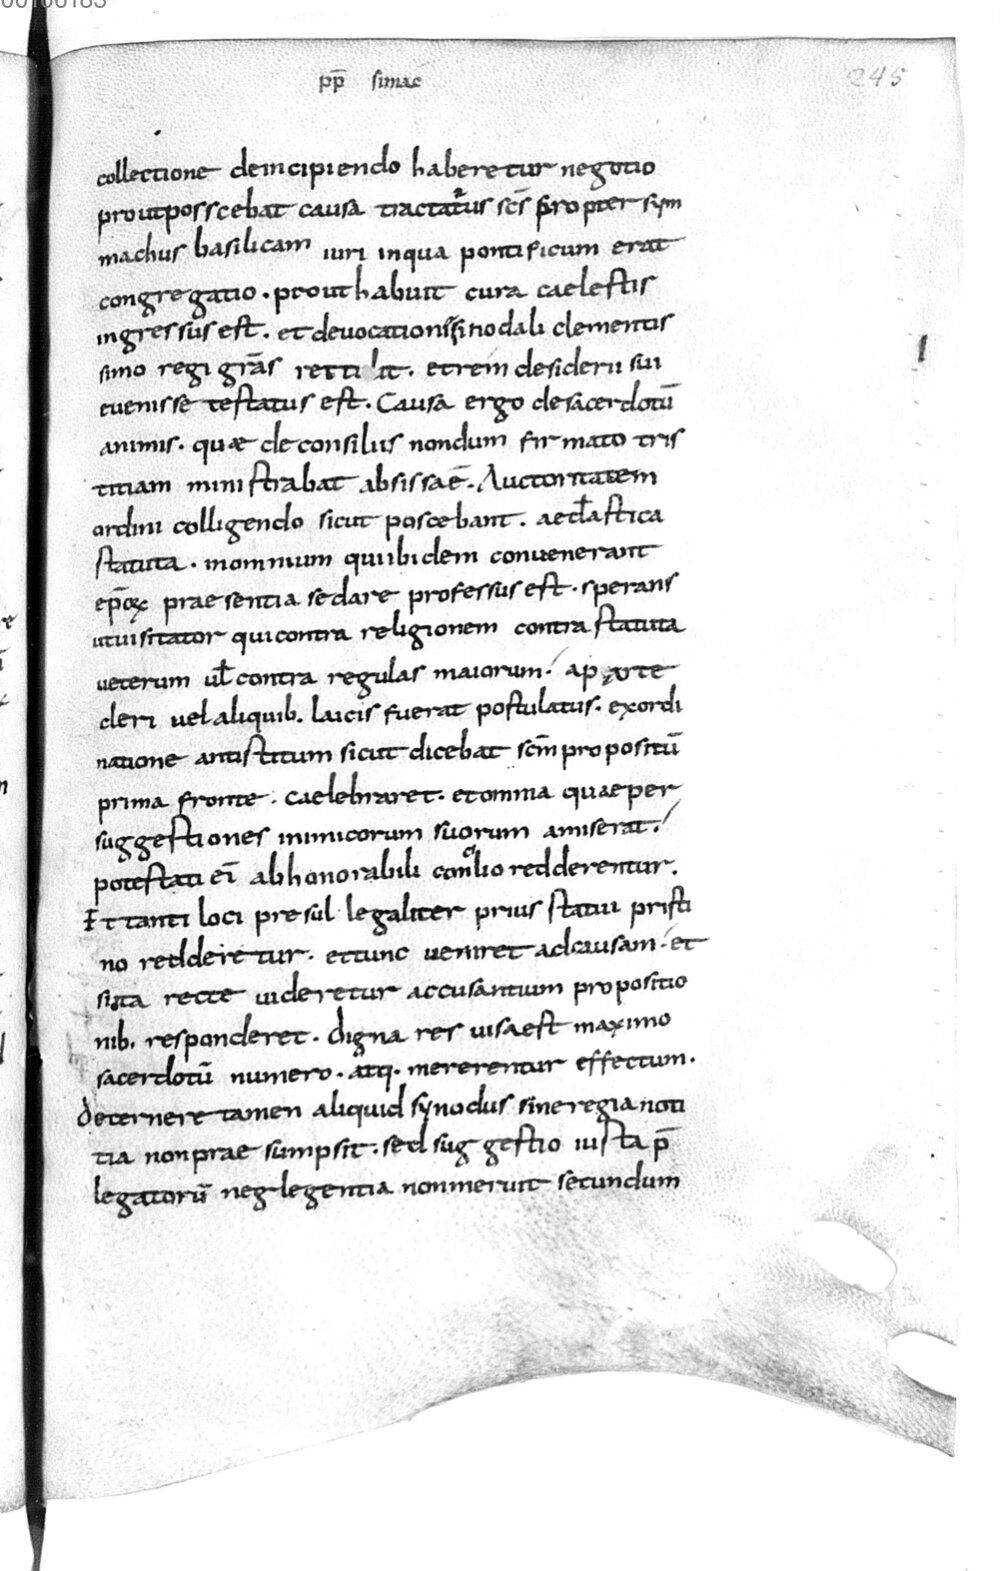 00106183
pp̄ simac
245
collectione deincipiendo haberetur negotio
proutposscebat causa tractatus scs̄ propter sym
machus basilicam iuri inqua pontificum erat
congregatio · prout habuit cura caelestis
ingressus est · et deuocationesinodali clementis
simo regi grās rettulit · etrem desiderii sui
euenisse testatus est · Causa ergo desacerdotū
animis · quae de consiliis nondum firmato tris
titiam ministrabat absissaē · Auctoritatem
ordini colligendo sicut poscebant · aecl̄astica
statuta · inomnium quiibidem conuenerant
ep̄oꝝ praesentia sedare professus est · sperans
utuisitator quicontra religionem contra statuta
ueterum ul̄ contra regulas maiorum · aparte
cleri uel aliquib. laicis fuerat postulatus · exordi
natione antistitum sicut dicebat scm̄ propositū
prima fronte · caelebraret · etomnia quaeper
suggestiones inimicorum suorum amiserat ·
potestati eī ab honorabili concilio redderentur .
Et tanti loci presul legaliter prius statui pristi
no redderetur · ettunc ueniret adcausam · et
siita recte uideretur accusantium propositio
nib. responderet · digna res uisaest maximo
sacerdotū numero · atq· mererentur effectum ·
decernere tamen aliquid synodus sineregia noti
tia nonpraesumpsit · sed suggestio iusta p̄
legatorū neglegentia nonmeruit secundum